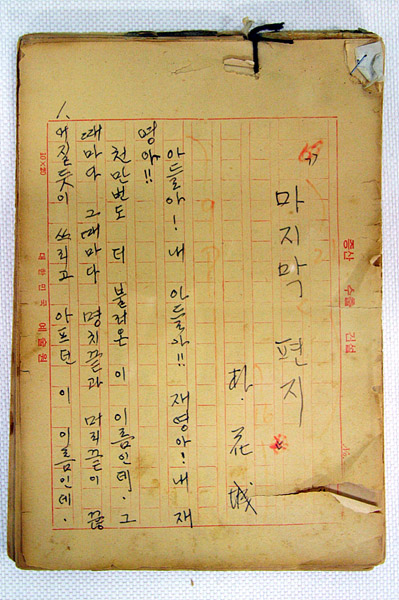 증산 수출 건설
마지막 편지
朴. 花城
아들아! 내 아들아!! 재영아! 내 재
영아!!
천만번도 더 불러온 이 이름인데. 그
때마다 그때마다 명치끝과 머리끝이 끊
어질듯이 쓰리고 아프던 이 이름인데.
10×20 대한민국 예술원